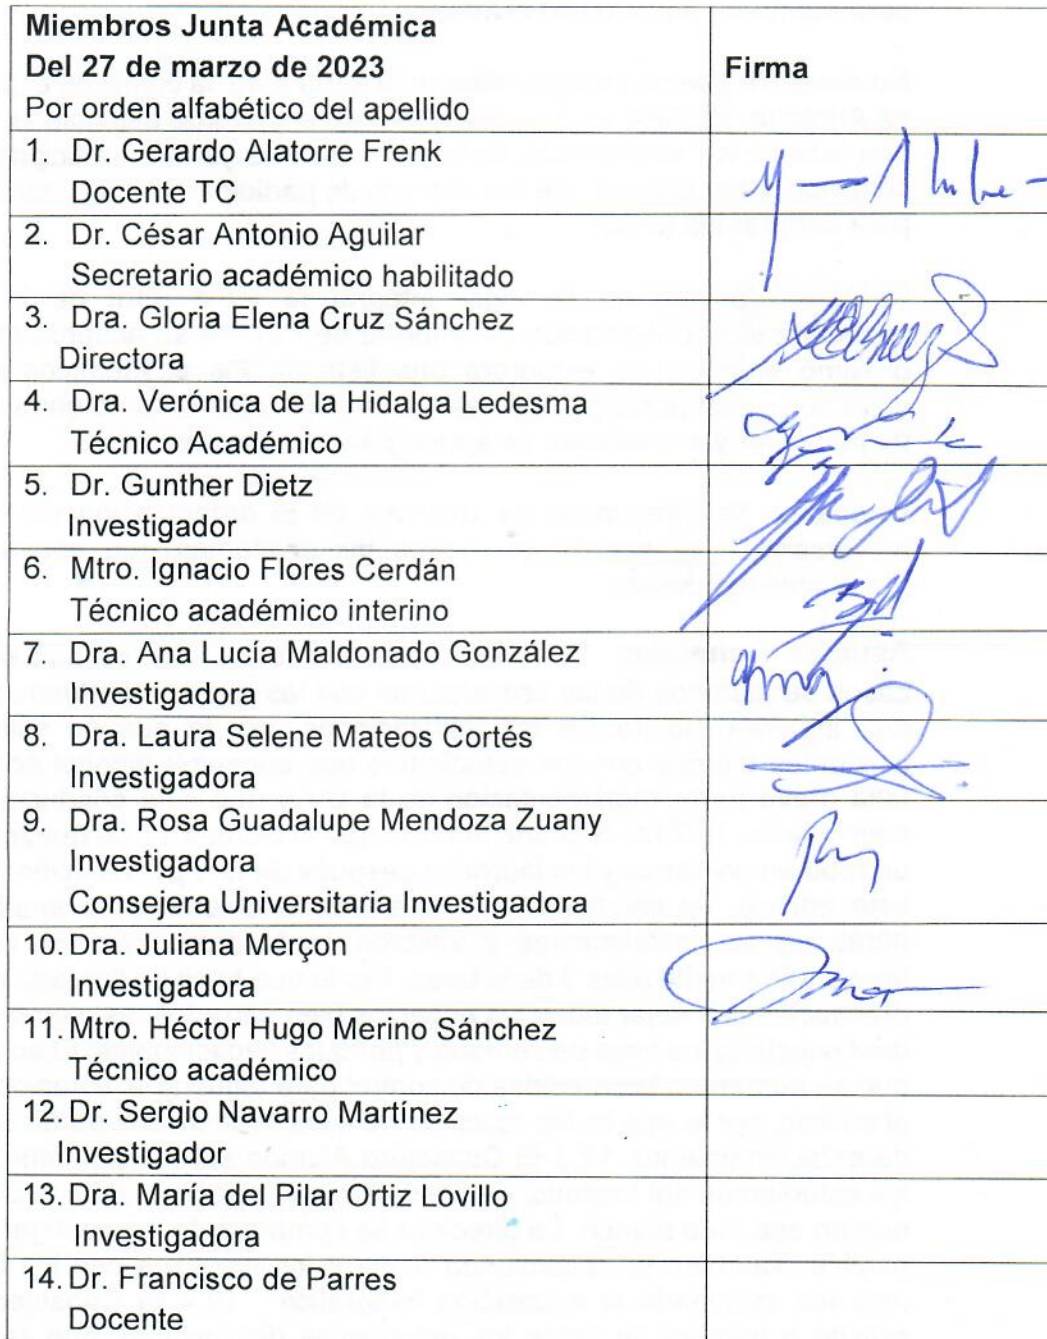 Miembros Junta Académica
Del 27 de marzo de 2023
Por orden alfabético del apellido
Firma
1. Dr. Gerardo Alatorre Frenk
Docente TC
2. Dr. César Antonio Aguilar
Secretario académico habilitado
3. Dra. Gloria Elena Cruz Sánchez
Directora
4. Dra. Verónica de la Hidalga Ledesma
Técnico Académico
5. Dr. Gunther Dietz
Investigador
6. Mtro. Ignacio Flores Cerdán
Técnico académico interino
7. Dra. Ana Lucía Maldonado González
Investigadora
8. Dra. Laura Selene Mateos Cortés
Investigadora
9. Dra. Rosa Guadalupe Mendoza Zuany
Investigadora
Consejera Universitaria Investigadora
10. Dra. Juliana Merçon
Investigadora
11. Mtro. Héctor Hugo Merino Sánchez
Técnico académico
12. Dr. Sergio Navarro Martínez
Investigador
13. Dra. María del Pilar Ortiz Lovillo
Investigadora
14. Dr. Francisco de Parres
Docente